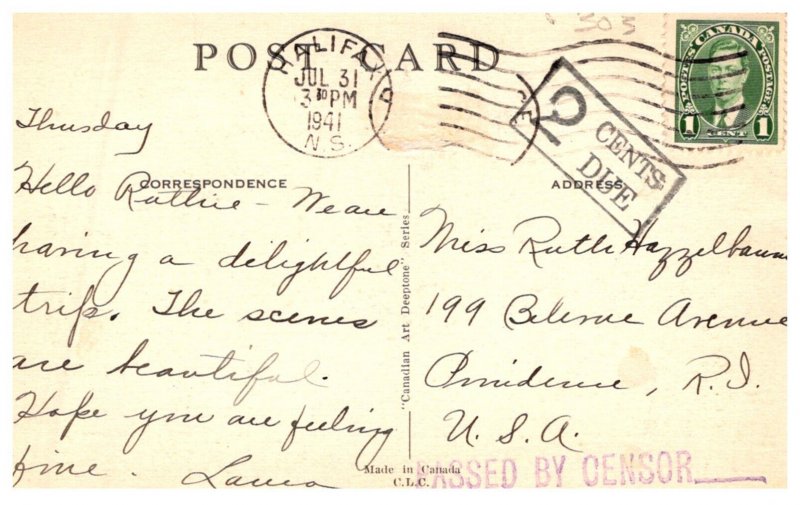 POST CARD
HALIFAX
JUL 31
3 30 PM
1941
N.S.
2 CENTS
DUE
POSTES CANADA POSTAGE
1 CENT 1
Thursday
CORRESPONDENCE
Hello Ruthie - We are
having a delightful
trip. The scenes
are beautiful.
Hope you are feeling
fine. Laura
"Canadian Art Deeptone" Series
ADDRESS
Miss Ruth Hazzelbaum
199 Bellevue Avenue
Providence, R.I.
U.S.A.
Made in Canada
C.L.C.
PASSED BY CENSOR